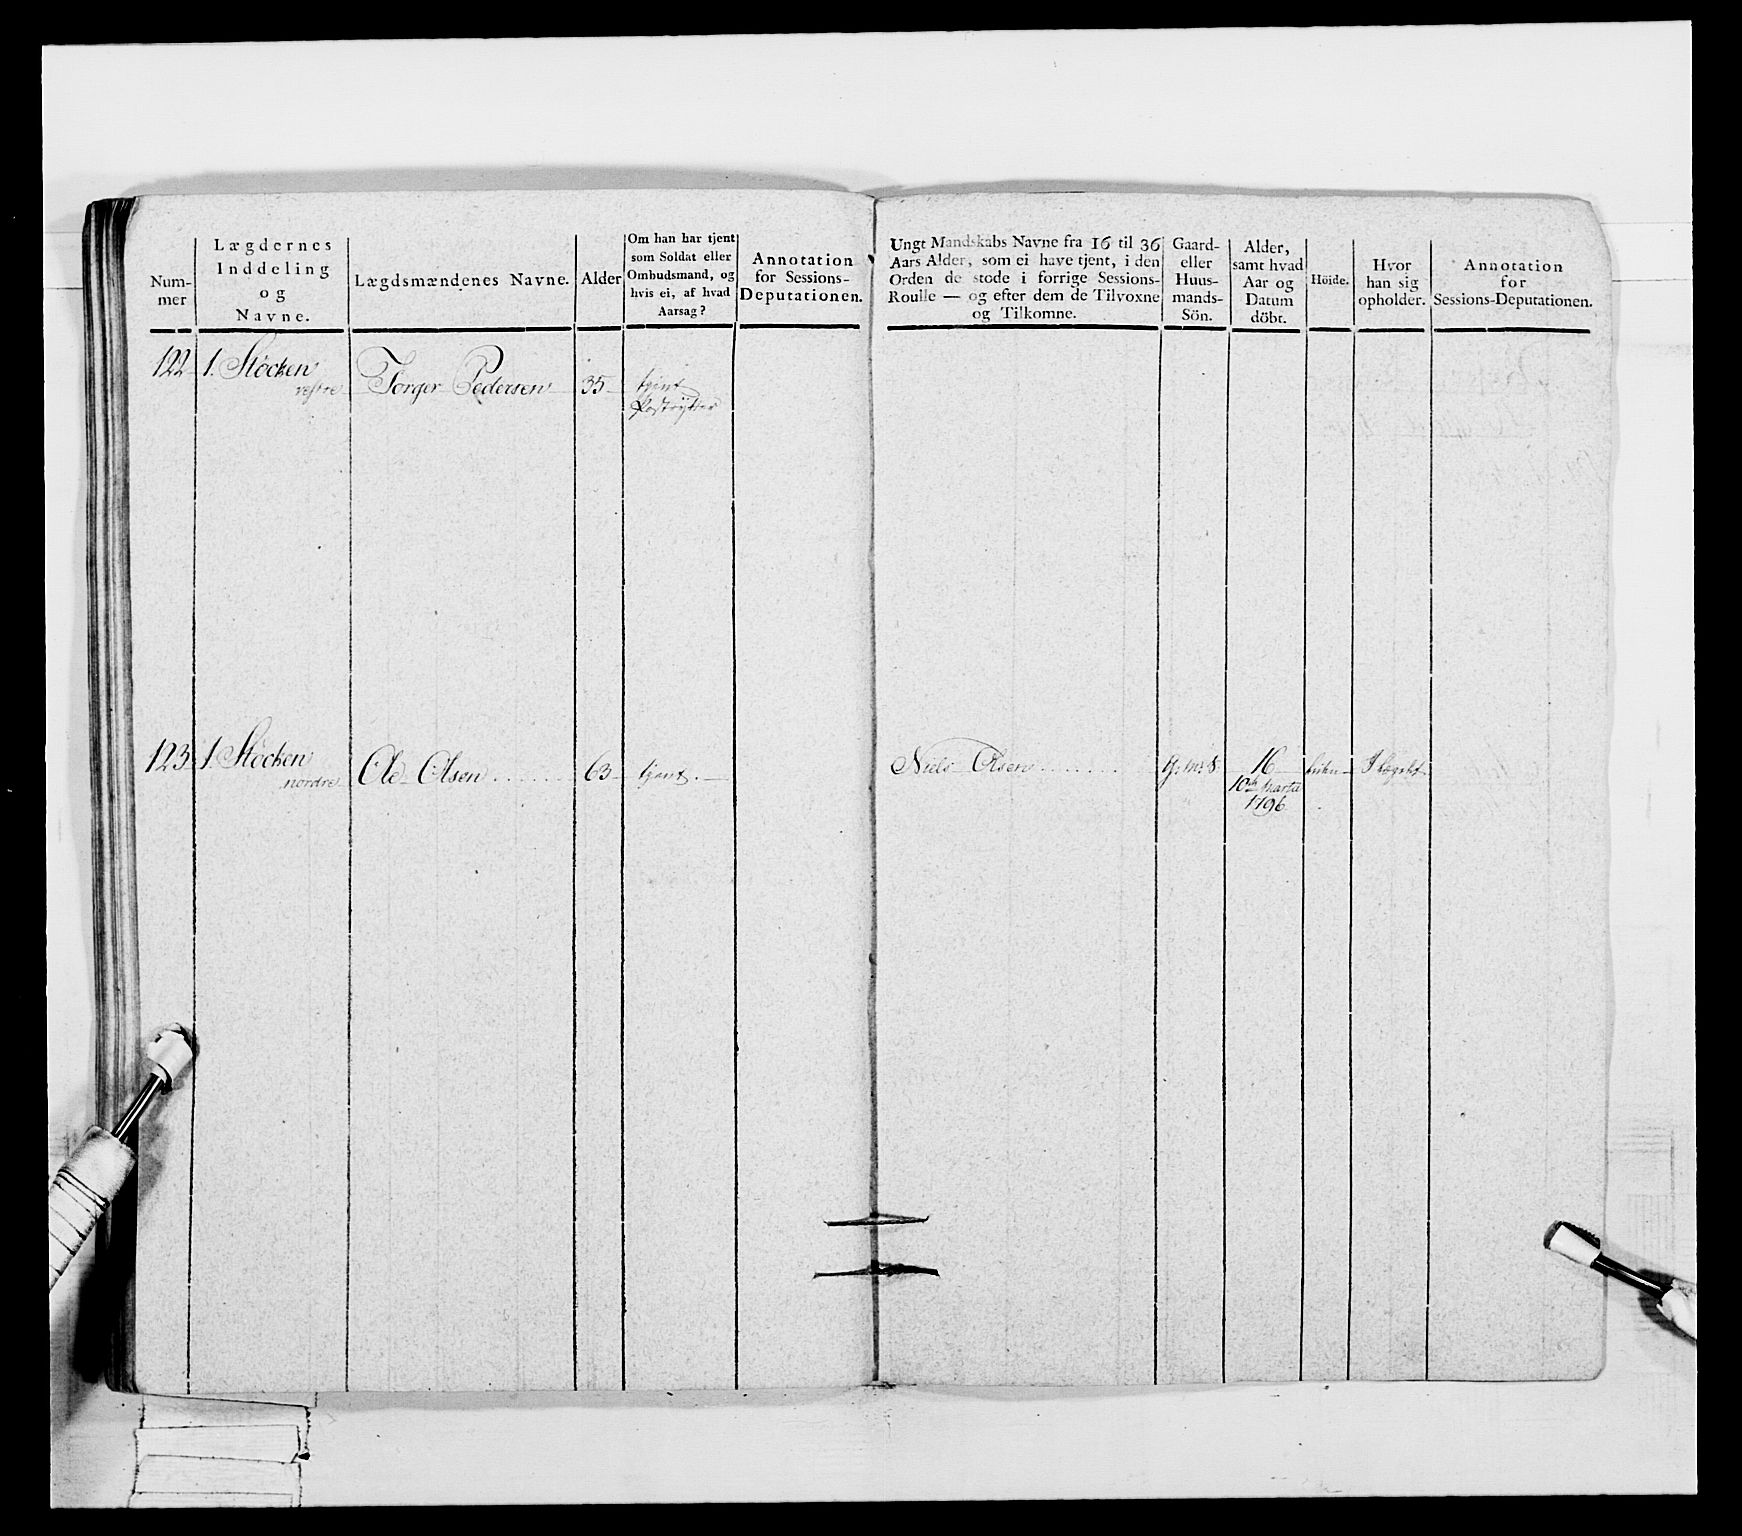 Num-
mer
Lægdernes
Inddeling
og
Navne.
Lægdsmændenes Navne.
Alder
Om han har tjent
som Soldat eller
Ombudsmand, og
hvis ei, af hvad
Aarsag?
Annotation
for Sessions-
Deputationen.
Ungt Mandskabs Navne fra 16 til 36
Aars Alder, som ei have tjent, i den
Orden de stode i forrige Sessions-
Roulle — og efter dem de Tilvoxne
og Tilkomne.
Gaard-
eller
Huus-
mands-
Sön.
Alder,
samt hvad
Aar og
Datum
döbt.
Höide.
Hvor
han sig
opholder.
Annotation
for
Sessions-Deputationen.
122 1. Stöcken
vestre Torger Pedersen 35 tjent
Postrytter
123 1. Stöcken
nordre Ole Olsen 63 tjent.
Niels Olsen G. M. S. 16 I Lægdet
10de Martii
1796